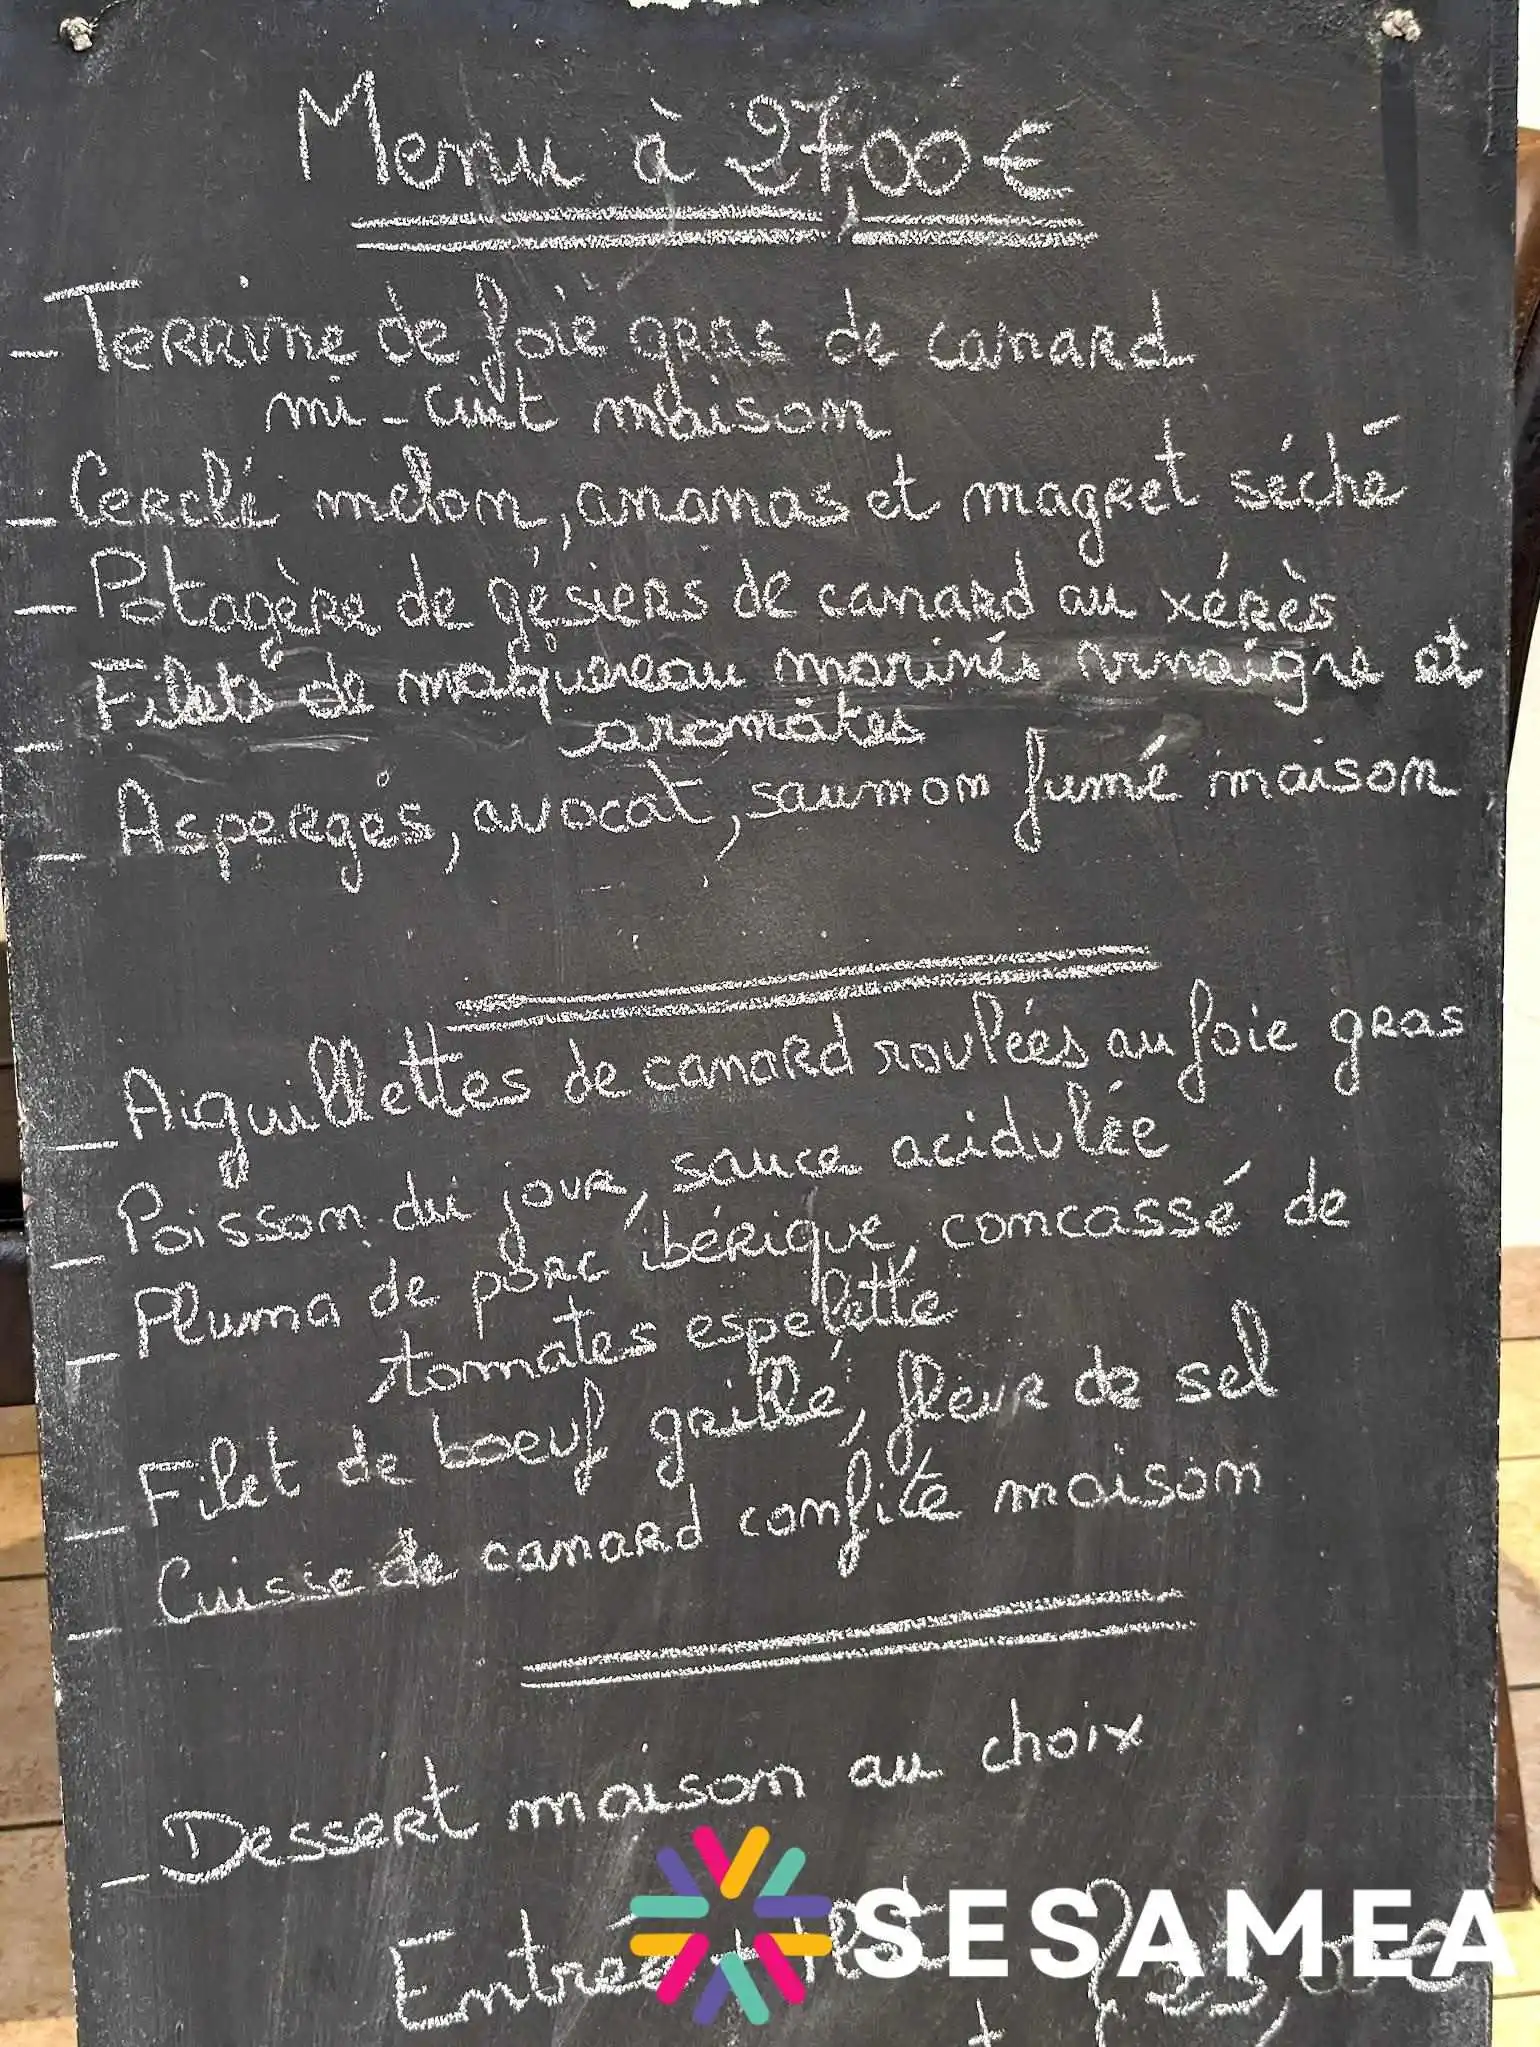 Menu à 27,00 €
- Terrine de foie gras de canard
mi-cuit maison
- Cerclé melon, ananas et magret séché
- Potagère de gésiers de canard au xérès
- Filets de maquereau marinés vinaigre et
aromates
- Asperges, avocat, saumon fumé maison
- Aiguillettes de canard roulées au foie gras
- Poisson du jour, sauce acidulée
- Pluma de porc ibérique concassé de
tomates espelette
- Filet de boeuf grillé, fleur de sel
- Cuisse de canard confite maison
- Dessert maison au choix
Entrée + Plat
SESAMEA